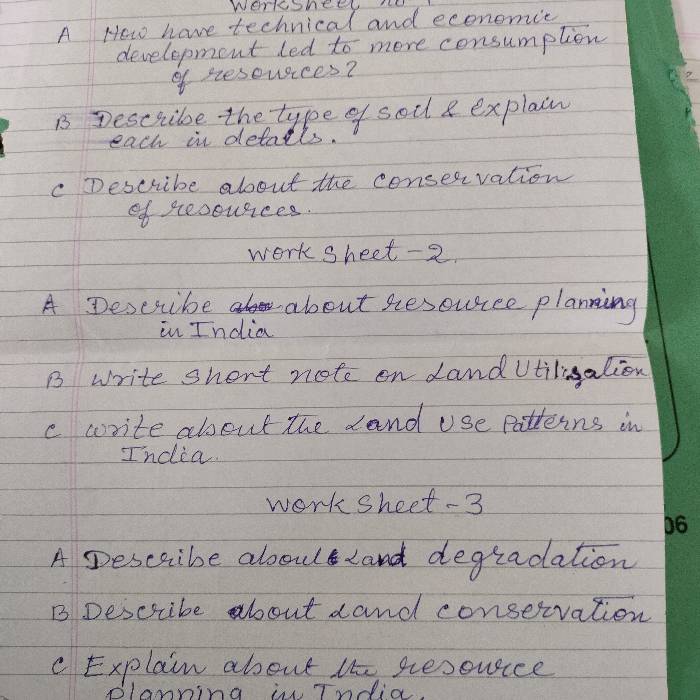 Worksheet no 1
A How have technical and economic
development led to more consumption
of resources?
B Describe the type of soil & explain
each in details.
C Describe about the conservation
of resources.
Work Sheet - 2.
A Describe about resource planning
in India
B Write short note on Land Utilisation
C Write about the Land Use Patterns in
India.
Work Sheet - 3
A Describe about Land degradation
B Describe about Land conservation
C Explain about the resource
planning in India.
06